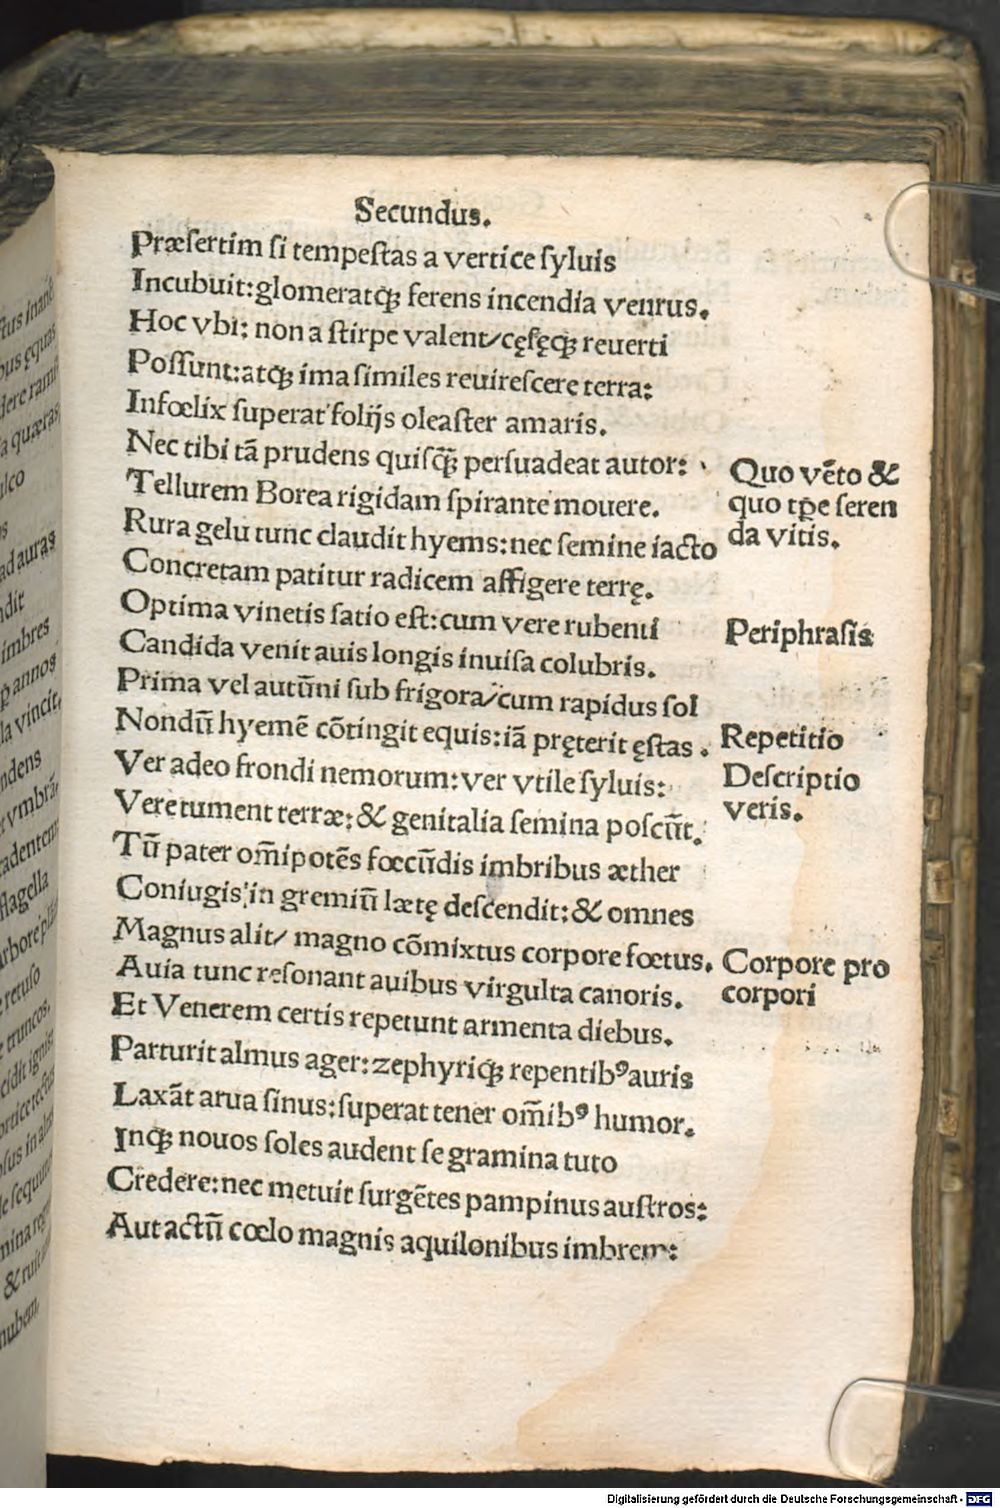 Secundus.
Præsertim si tempestas a vertice syluis
Incubuit: glomeratq̃ ferens incendia ventus.
Hoc vbi: non a stirpe valent/ cęsęq̃ reuerti
Possunt: atq̃ ima similes reuirescere terra:
Infœlix superat folijs oleaster amaris.
Nec tibi tã prudens quisq̃ persuadeat autor:
Quo vẽto &
Tellurem Borea rigidam spirante mouere.
quo tp̃e seren
Rura gelu tunc claudit hyems: nec semine iacto
da vitis.
Concretam patitur radicem affigere terrę.
Optima vinetis satio est: cum vere rubenti
Periphrasis
Candida venit auis longis inuisa colubris.
Prima vel autũni sub frigora/ cum rapidus sol
Nondũ hyemẽ cõtingit equis: iã pręterit ęstas.
Repetitio
Ver adeo frondi nemorum: ver vtile syluis:
Descriptio
Vere tument terræ: & genitalia semina poscũt.
veris.
Tũ pater om̃ipotẽs fœcũdis imbribus æther
Coniugis in gremiũ lætę descendit: & omnes
Magnus alit/ magno cõmixtus corpore fœtus.
Corpore pro
Auia tunc resonant auibus virgulta canoris.
corpori
Et Venerem certis repetunt armenta diebus.
Parturit almus ager: zephyriq̃ repentibꝰ auris
Laxãt arua sinus: superat tener om̃ibꝰ humor.
Inq̃ nouos soles audent se gramina tuto
Credere: nec metuit surgẽtes pampinus austros:
Aut actũ cœlo magnis aquilonibus imbrem:
Digitalisierung gefördert durch die Deutsche Forschungsgemeinschaft - DFG